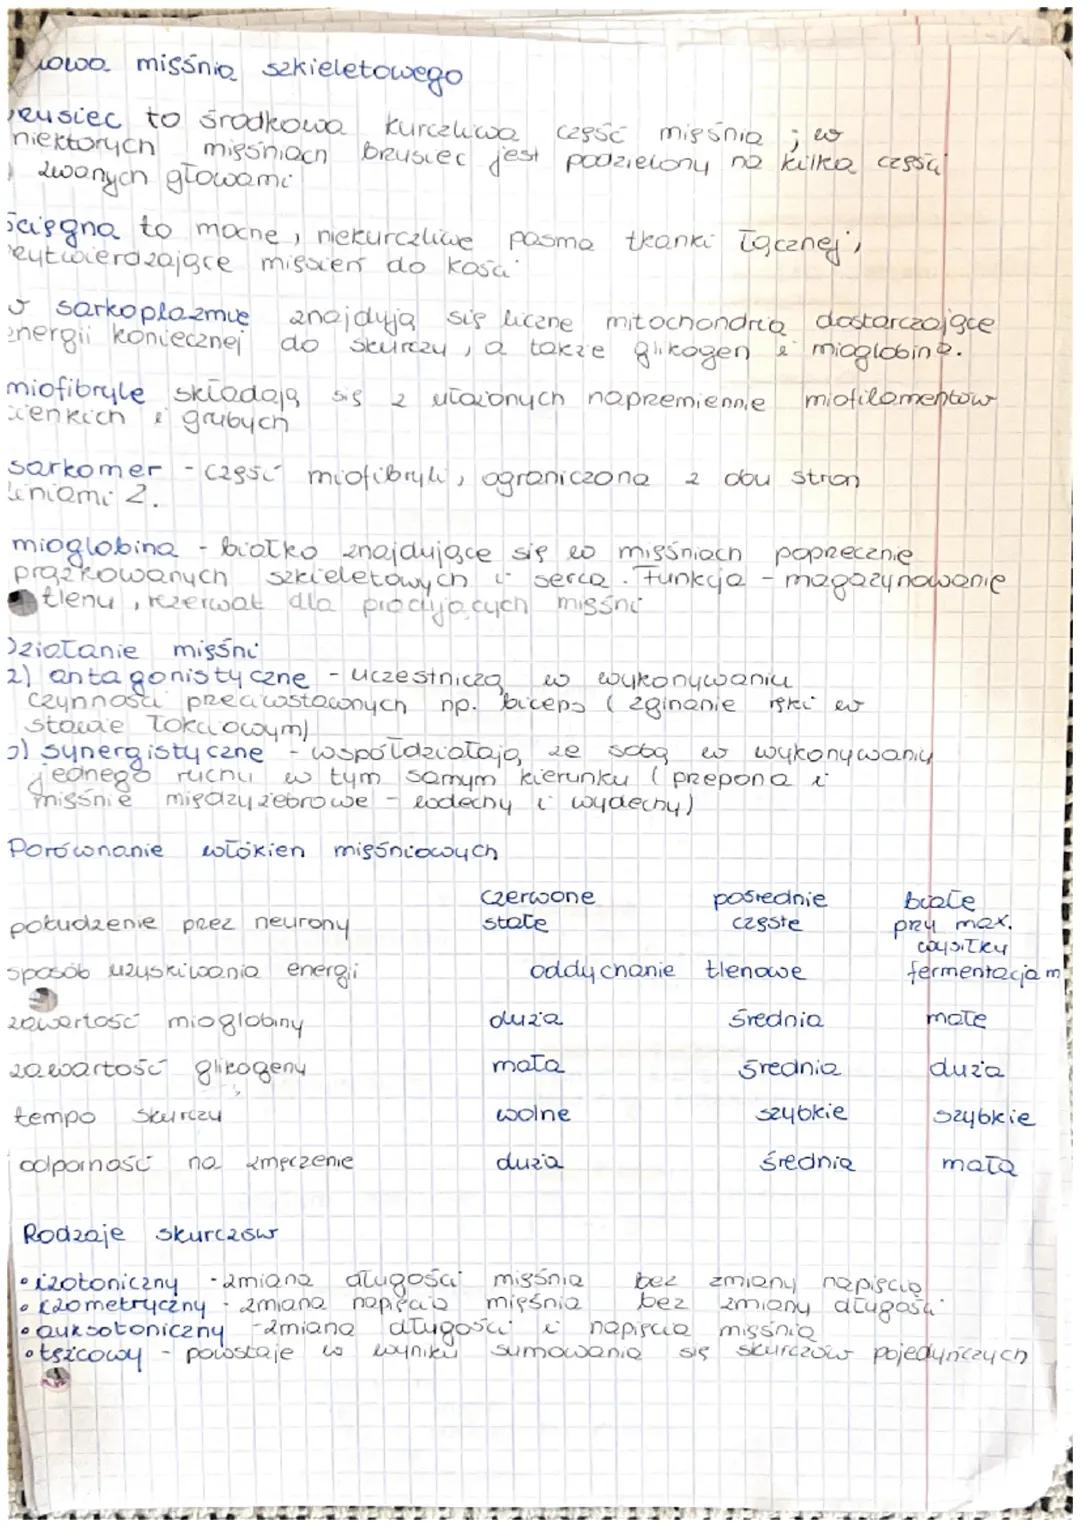 owa mięśnia szkieletowego
rusiec to środkowa kurczliwa część mięśnia ; w
niektorych mięśniach brusiec jest podzielony na kilka części
zwanych głowami
ścięgna to mocne, niekurczliwe pasma tkanki łącznej,
rzytwierdzające mięsień do kości
w sarkoplazmie znajdują się liczne mitochondria dostarczające
energii koniecznej do skurczu, a także glikogen i mioglobina.
miofibryle składają się z ułożonych naprzemiennie miofilamentow
cienkich i grubych
sarkomer - część miofibryli, ograniczona z obu stron
liniami Z.
mioglobina - białko znajdujące się w mięśniach poprzecznie
prążkowanych szkieletowych i serca. Funkcja - magazynowanie
tlenu, rezerwat dla mięśni
Działanie mięśni
2) antagonistyczne - uczestniczą w wykonywaniu
czynności przeciwstawnych np. biceps (zginanie ręki w
stawie łokciowym)
synergistyczne - współdziałają ze sobą w wykonywaniu
jednego ruchu w tym samym kierunku (przepona i
mięśnie międzyżebrowe - wdechy i wydechy)
Porównanie włókien mięśniowych
czerwone pośrednie białe
pobudzenie przez neurony stałe częste przy max.
wysiłku
sposób uzyskiwania energii oddychanie tlenowe fermentacja m
zawartość mioglobiny duża średnia małe
zawartość glikogenu mała średnia duża
tempo skurczu wolne szybkie szybkie
odporność na zmęczenie duża średnia mała
Rodzaje skurczów
• izotoniczny - zmiana długości mięśnia bez zmiany napięcia
• izometryczny - zmiana napięcia mięśnia bez zmiany długości
• auksotoniczny - zmiana długości i napięcia mięśnia
• tężcowy - powstaje w wyniku sumowania się skurczów pojedyńczych